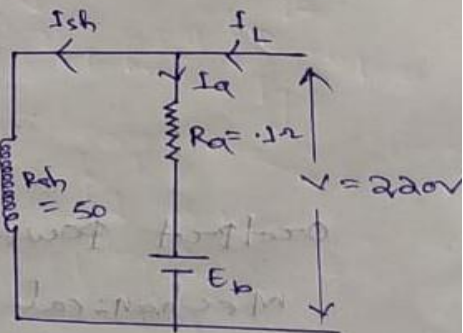 Ish
IL
Ia
Ra = .1Ω
Rsh
= 50
V = 220V
Eb